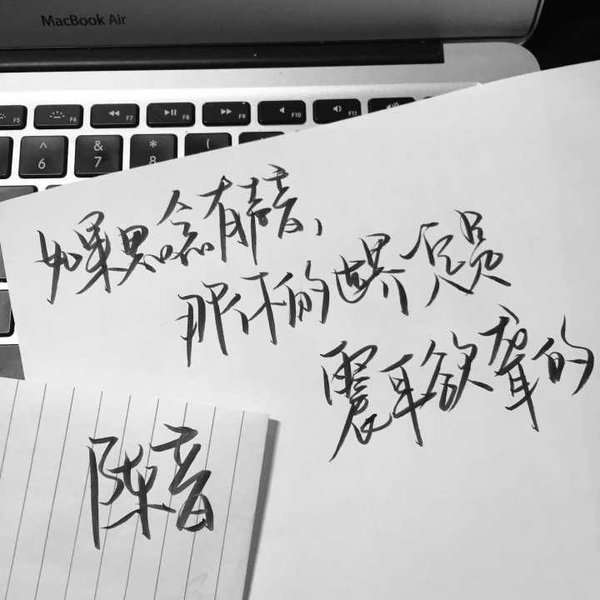 MacBook Air
F5 F6 F7 F8 F9 F10 F11
^ & * (
6 7 8
如果思念有声音,
那你的世界
震耳欲聋的
陈音